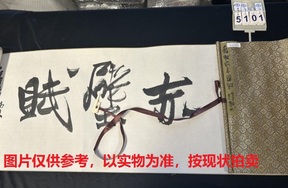 5101
赤壁賦
图片仅供参考，以实物为准，按现状拍卖